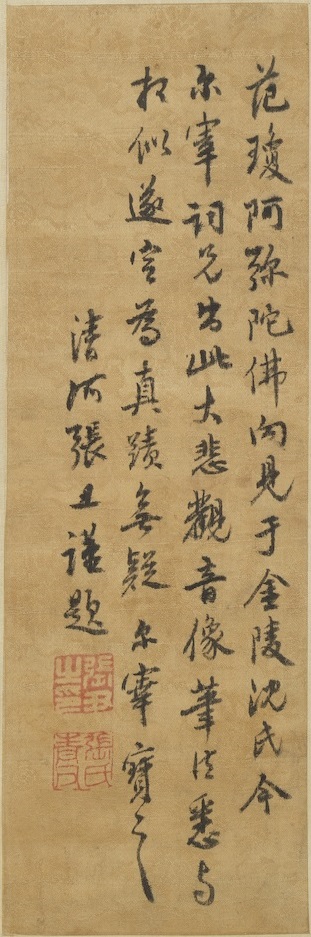 范瓊阿彌陀佛向見于金陵沈氏今
尔宰詞兄出此大悲觀音像筆法悉与
相似遂定為真蹟無疑尔宰寶之
清河張丑謹題
張丑之印